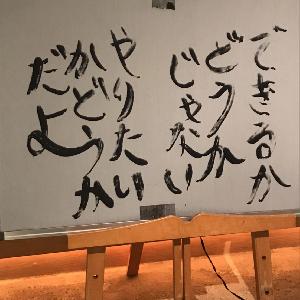 できるか
どうか
じゃない
やりたい
かどうか
だよ